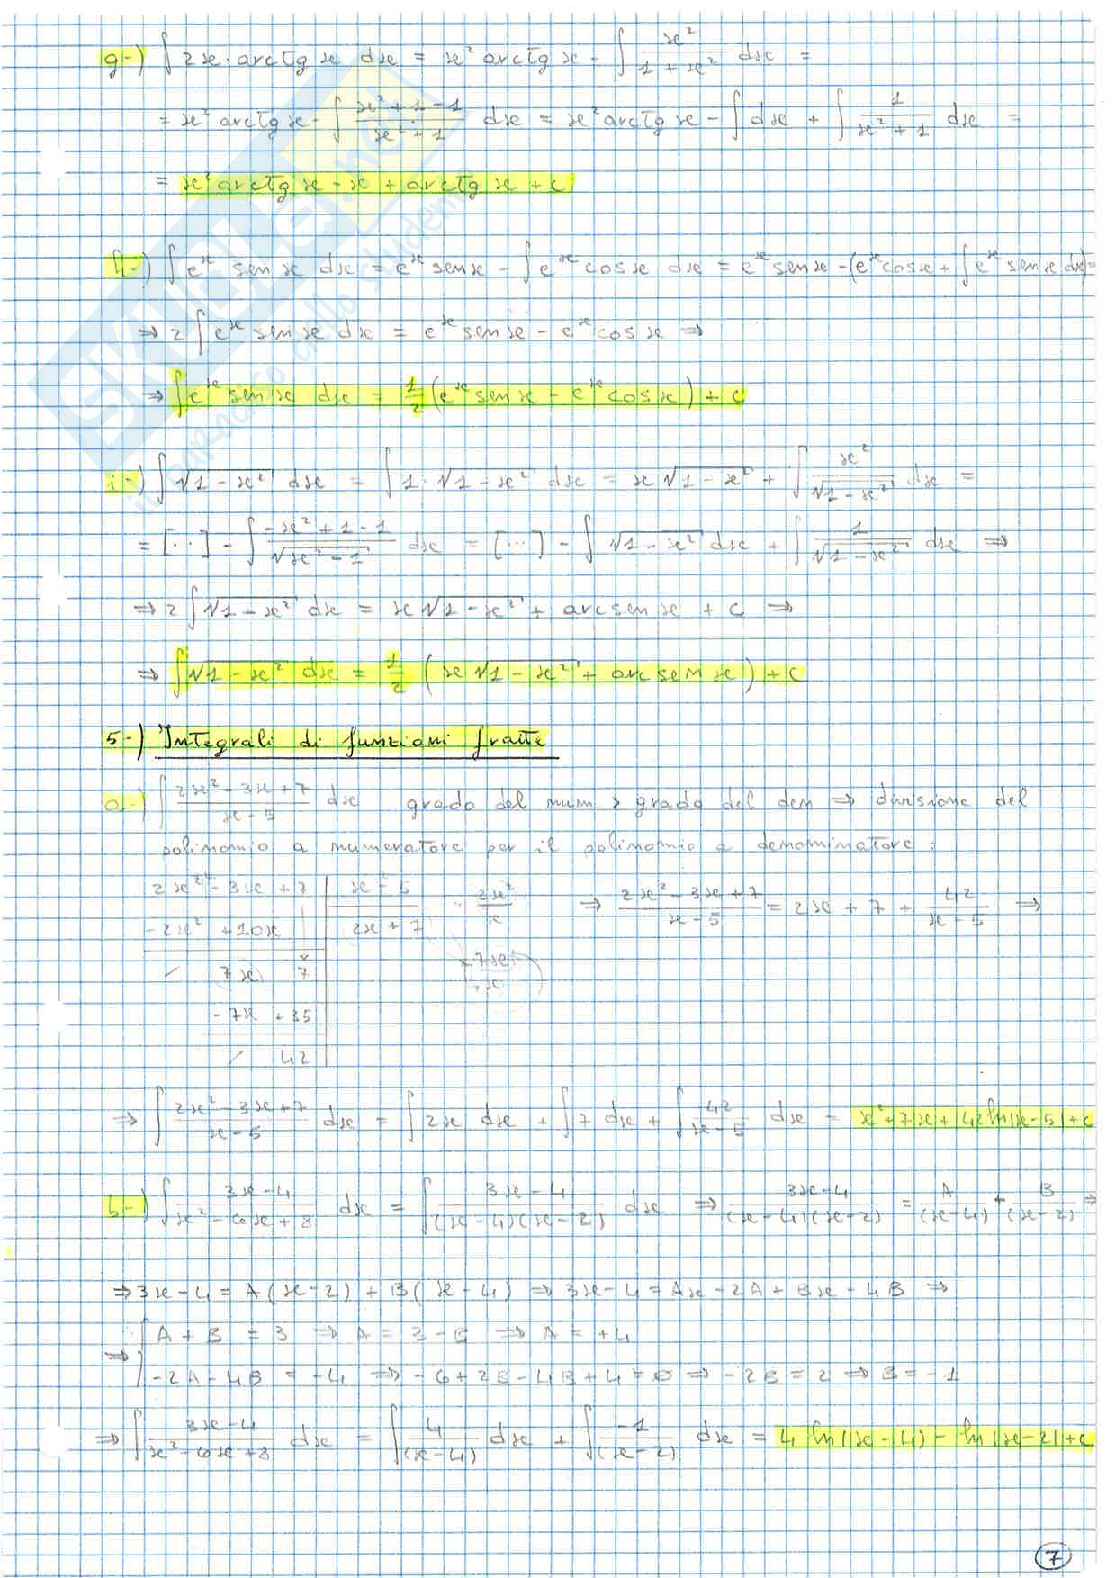 g-) ∫ 2x · arctg x dx = x² arctg x - ∫ x²/(1+x²) dx =
= x² arctg x - ∫ (x²+1-1)/(x²+1) dx = x² arctg x - ∫ dx + ∫ 1/(x²+1) dx =
= x² arctg x - x + arctg x + c
h-) ∫ eˣ sen x dx = eˣ sen x - ∫ eˣ cos x dx = eˣ sen x - (eˣ cos x + ∫ eˣ sen x dx) =
⇒ 2 ∫ eˣ sen x dx = eˣ sen x - eˣ cos x ⇒
⇒ ∫ eˣ sen x dx = 1/2 (eˣ sen x - eˣ cos x) + c
i-) ∫ √(1-x²) dx = ∫ 1·√(1-x²) dx = x √(1-x²) + ∫ x²/√(1-x²) dx =
= [...] - ∫ (-x²+1-1)/√(x²-1) dx = [...] - ∫ √(1-x²) dx + ∫ 1/√(1-x²) dx ⇒
⇒ 2 ∫ √(1-x²) dx = x √(1-x²) + arcsen x + c ⇒
⇒ ∫ √(1-x²) dx = 1/2 (x √(1-x²) + arcsen x) + c
5-) Integrali di funzioni fratte
a-) ∫ (2x²-3x+7)/(x-5) dx grado del num > grado del den ⇒ divisione del
polinomio a numeratore per il polinomio a denominatore:
2x²-3x+7 | x-5 2x²/x ⇒ (2x²-3x+7)/(x-5) = 2x+7+ 42/(x-5) ⇒
-2x² +10x | 2x+7
/ 7x 7 +7x/x
-7x +35
/ 42
⇒ ∫ (2x²-3x+7)/(x-5) dx = ∫ 2x dx + ∫ 7 dx + ∫ 42/(x-5) dx = x²+7x+42 ln|x-5|+c
b-) ∫ (3x-4)/(x²-6x+8) dx = ∫ (3x-4)/((x-4)(x-2)) dx ⇒ (3x-4)/((x-4)(x-2)) = A/(x-4) + B/(x-2) ⇒
⇒ 3x-4 = A(x-2) + B(x-4) ⇒ 3x-4 = Ax-2A+Bx-4B ⇒
⇒ { A + B = 3 ⇒ A = 3-B ⇒ A = +4
-2A-4B = -4 ⇒ -6+2B-4B+4=0 ⇒ -2B = 2 ⇒ B = -1
⇒ ∫ (3x-4)/(x²-6x+8) dx = ∫ 4/(x-4) dx + ∫ -1/(x-2) dx = 4 ln|x-4| - ln|x-2|+c
7